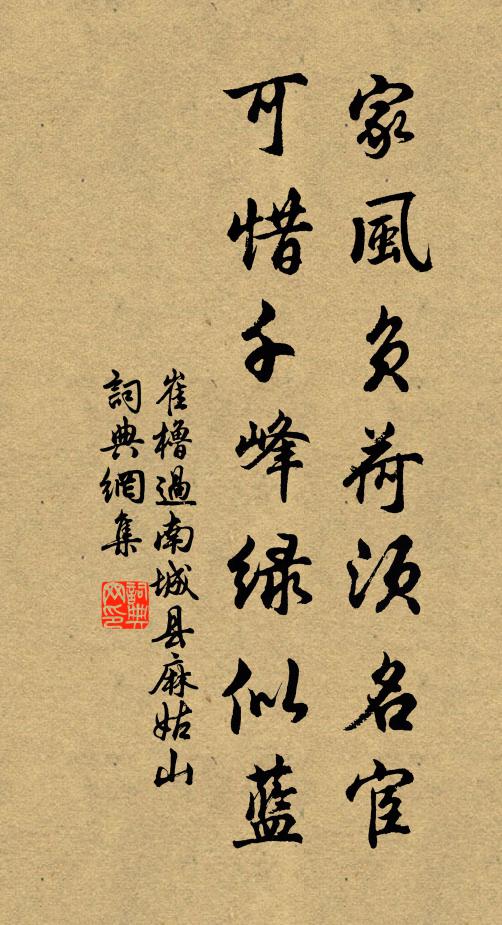 家風負荷須名宦
可惜千峰緑似藍
崔櫓過南城县麻姑山
詞典網集
詞典网印